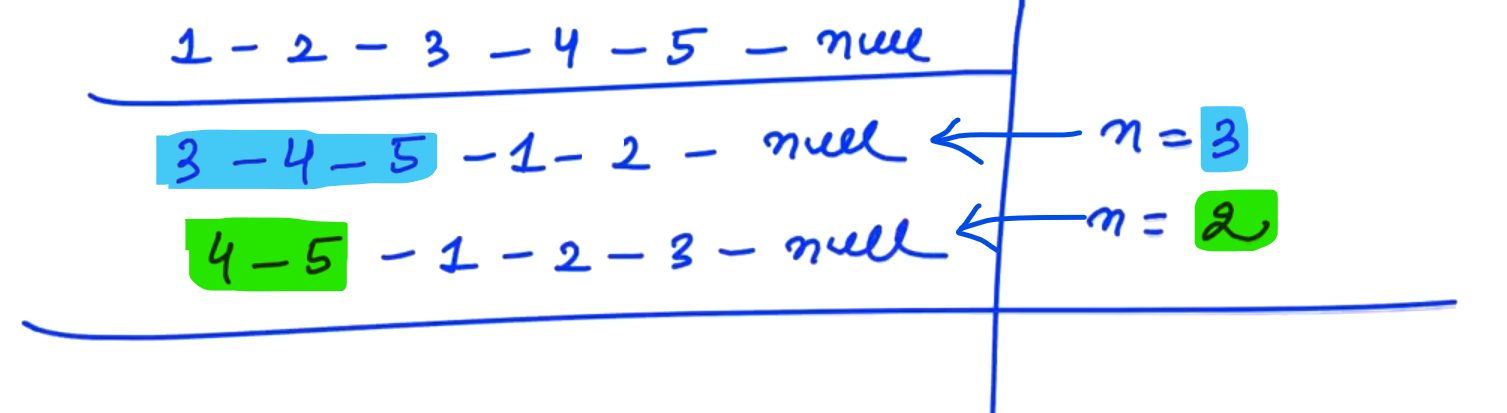 1 - 2 - 3 - 4 - 5 - null
3 - 4 - 5 - 1 - 2 - null ← n = 3
4 - 5 - 1 - 2 - 3 - null ← n = 2